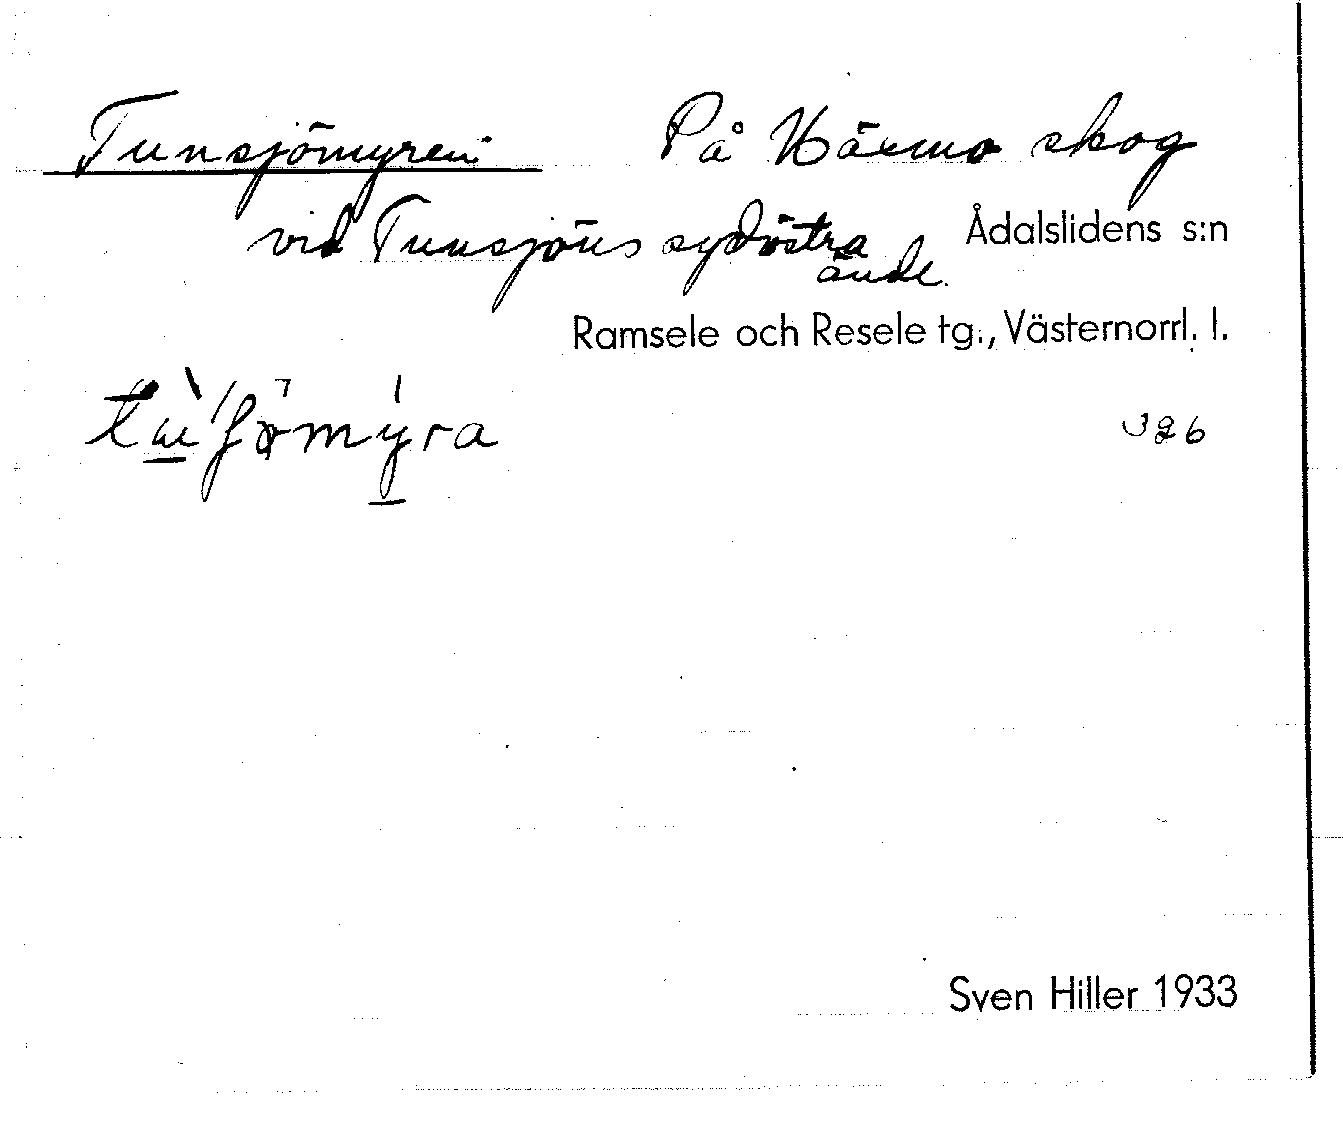 Tunsjömyren: På Värmo skog
vid Tunsjöns sydöstra Ådalslidens s:n
ände.
Ramsele och Resele tg., Västernorrl. l.
326
Sven Hiller 1933